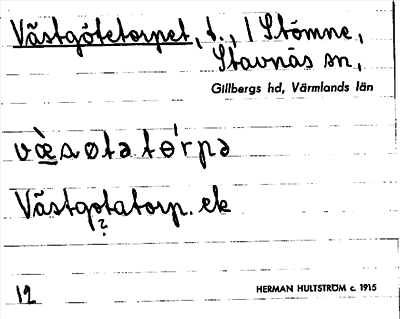 Västgötetorpet, t., / Stömne,
Stavnäs sn,
Gillbergs hd, Värmlands län
væ̀søtətɵ́rpə
Västgotatorp. ek
?
12
HERMAN HULTSTRÖM c. 1915